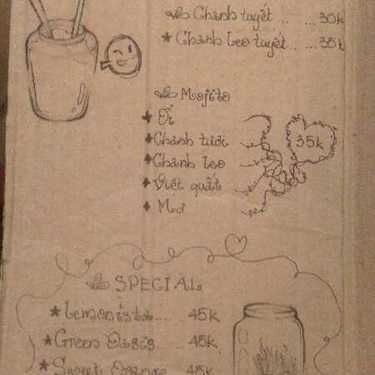 Chanh tuyết .. ... 30k
* Chanh leo tuyết .. 35k
Mojito
Ổi
Chanh tươi
Chanh leo
35k
Việt quất
Mơ
SPECIAL
* Lemonista ... 45k
* Green Oasis ... 45k.
* Sweet Orange ... 45k